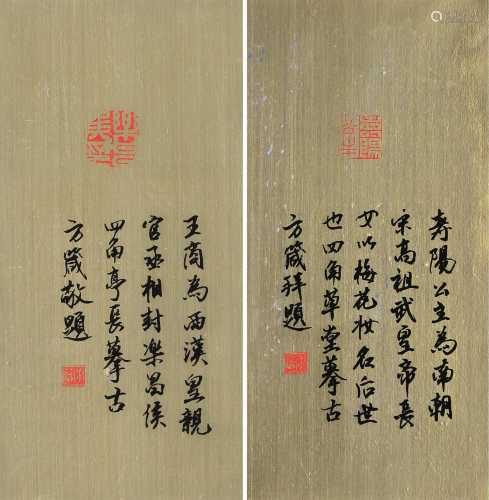 王商為西漢皇親
官丞相封樂昌侯
四角亭長摹古
方箴敬題
壽陽公主為南朝
宋高祖武皇帝長
女以梅花妆名后世
也四角草堂摹古
方箴拜題